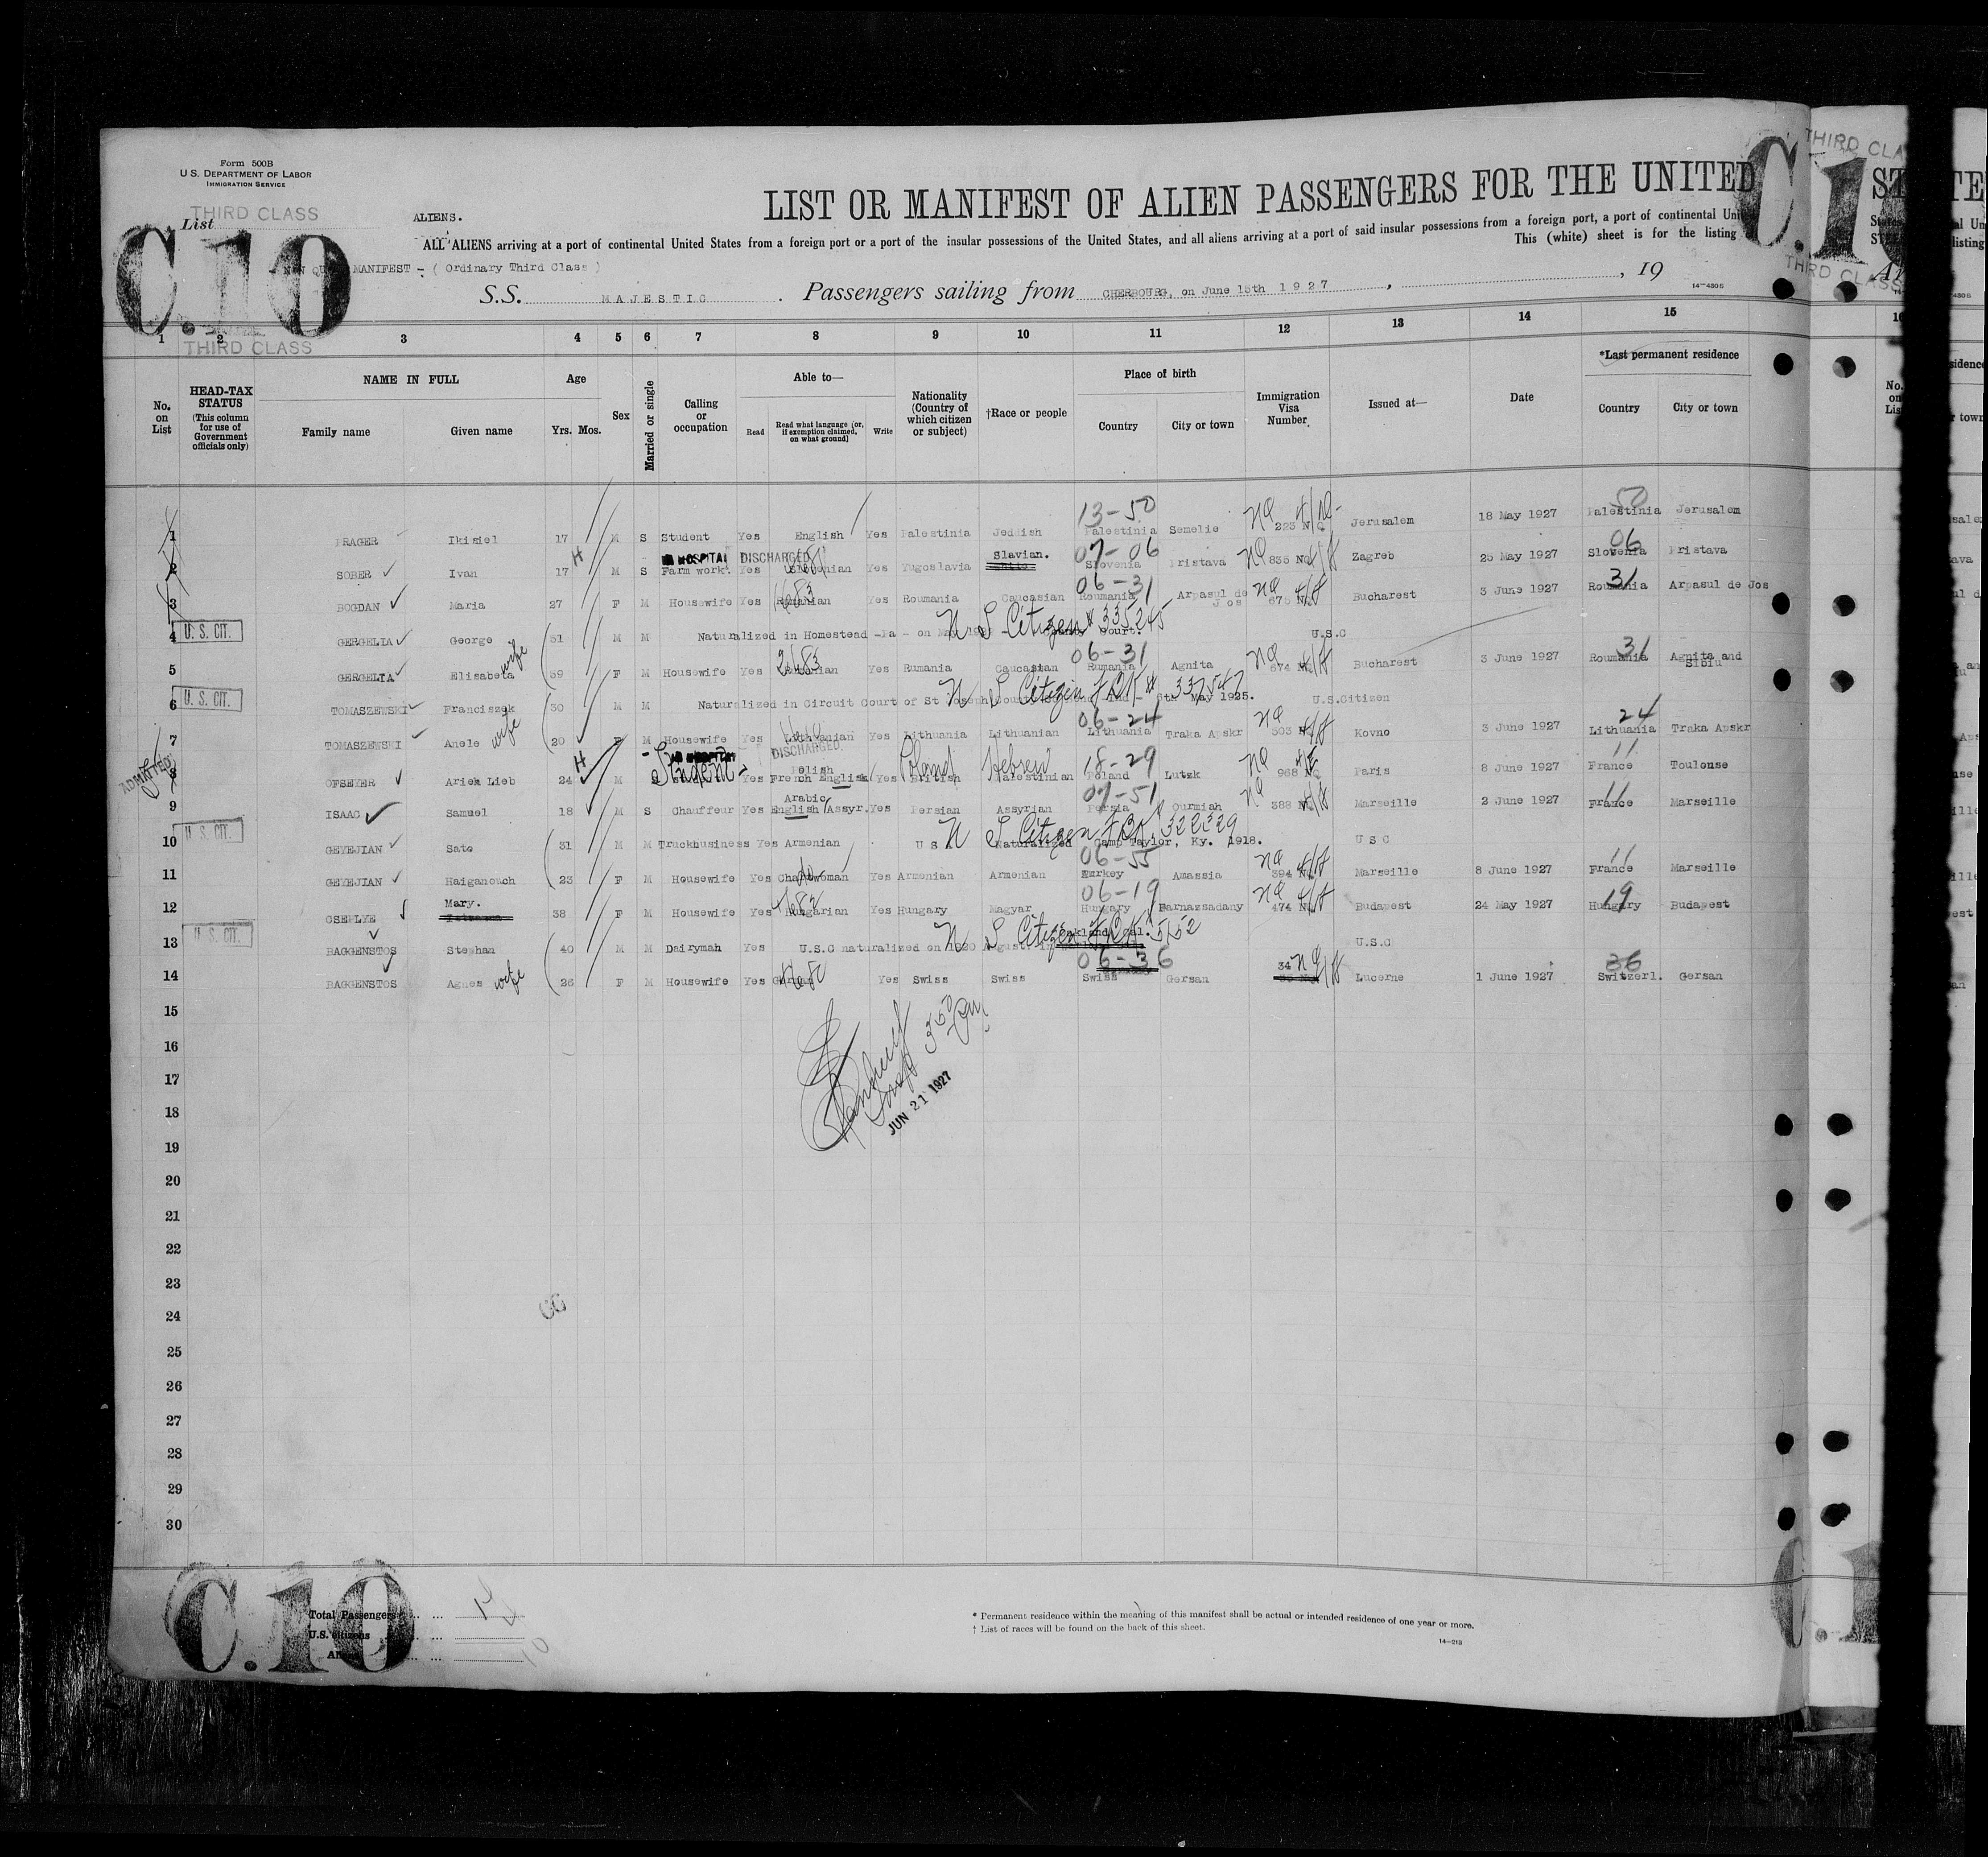 Form 500B
U. S. DEPARTMENT OF LABOR
IMMIGRATION SERVICE
THIRD CLASS
List
C.10
THIRD CLASS
ALIENS.
LIST OR MANIFEST OF ALIEN PASSENGERS FOR THE UNITED
ALL ALIENS arriving at a port of continental United States from a foreign port or a port of the insular possessions of the United States, and all aliens arriving at a port of said insular possessions from a foreign port, a port of continental
This (white) sheet is for the listing
MANIFEST - ( Ordinary Third Class )
S.S. MAJESTIC. Passengers sailing from CHERBOURG, on June 15th 1927, , 19
14-430B
1 2 3 4 5 6 7 8 9 10 11 12 13 14 15
No. on List
HEAD-TAX STATUS (This column for use of Government officials only)
NAME IN FULL
Family name Given name
Age
Yrs. Mos.
Sex
Married or single
Calling or occupation
Able to—
Read Read what language (or, if exemption claimed, on what ground) Write
Nationality (Country of which citizen or subject)
†Race or people
Place of birth
Country City or town
Immigration Visa Number
Issued at—
Date
*Last permanent residence
Country City or town
13-50 50
1 PRAGER Ikisiel 17 M S Student Yes English Yes Palestinia Jeddish Palestinia Semelie 223 NQ Jerusalem 18 May 1927 Palestinia Jerusalem
HOSPITAL DISCHARGED Slavian. 07-06 06
2 SOBER Ivan 17 M S Farm work. Yes Slovenian Yes Yugoslavia Slovenia Pristava 835 NQ Zagreb 25 May 1927 Slovenia Pristava
06-31 31
3 BOGDAN Maria 27 F M Housewife Yes Rumanian Yes Roumania Caucasian Roumania Arpasul de Jos 675 NQ Bucharest 3 June 1927 Roumania Arpasul de Jos
U. S. CIT.
4 GERGELIA George 51 M M Naturalized in Homestead -Pa - on May Court. U.S.C
U S Citizen # 335245
06-31 31
5 GERGELIA Elisabeta wife 39 F M Housewife Yes Rumanian Yes Rumania Caucasian Rumania Agnita 674 NQ Bucharest 3 June 1927 Roumania Agnita and Sibiu
U. S. CIT.
6 TOMASZEWSKI Franciszek 30 M M Naturalized in Circuit Court of St Joseph May 1925. U.S.Citizen
U S Citizen # 337547
06-24 24
7 TOMASZEWSKI Anele wife 20 F M Housewife Yes Lithuanian Yes Lithuania Lithuanian Lithuania Traka Apskr 503 NQ Kovno 3 June 1927 Lithuania Traka Apskr
ADMITTED DISCHARGED. Polish 18-29 11
8 OFSEYER Arieh Lieb 24 M S Student Yes French English Yes British Poland Palestinian Hebrew Poland Lutzk 968 NQ Paris 8 June 1927 France Toulouse
Arabic 07-51 11
9 ISAAC Samuel 18 M S Chauffeur Yes English Assyr. Yes Persian Assyrian Persia Ourmiah 388 NQ Marseille 2 June 1927 France Marseille
U. S. CIT.
10 GEYEJIAN Sato 31 M M Truckbusiness Yes Armenian U S Naturalized Camp Taylor, Ky. 1918. U S C
U S Citizen 322329
06-55 11
11 GEYEJIAN Haiganouch 23 F M Housewife Yes Yes Armenian Armenian Turkey Amassia 394 NQ Marseille 8 June 1927 France Marseille
Mary. 06-19 19
12 CSEPLYE 38 F M Housewife Yes Hungarian Yes Hungary Magyar Hungary Farnazsadany 474 NQ Budapest 24 May 1927 Hungary Budapest
U. S. CIT.
13 BAGGENSTOS Stephan 40 M M Dairyman Yes U.S.C naturalized on 1920 August U.S.C
U S Citizen
06-36 36
14 BAGGENSTOS Agnes wife 26 F M Housewife Yes German Yes Swiss Swiss Swiss Gersan 34 Lucerne 1 June 1927 Switzerl. Gersan
15
16
17
JUN 21 1927
18
19
20
21
22
23
24
25
26
27
28
29
30
C.10
Total Passengers ... ... 14
U.S. citizens ... ...
* Permanent residence within the meaning of this manifest shall be actual or intended residence of one year or more.
† List of races will be found on the back of this sheet.
14-213